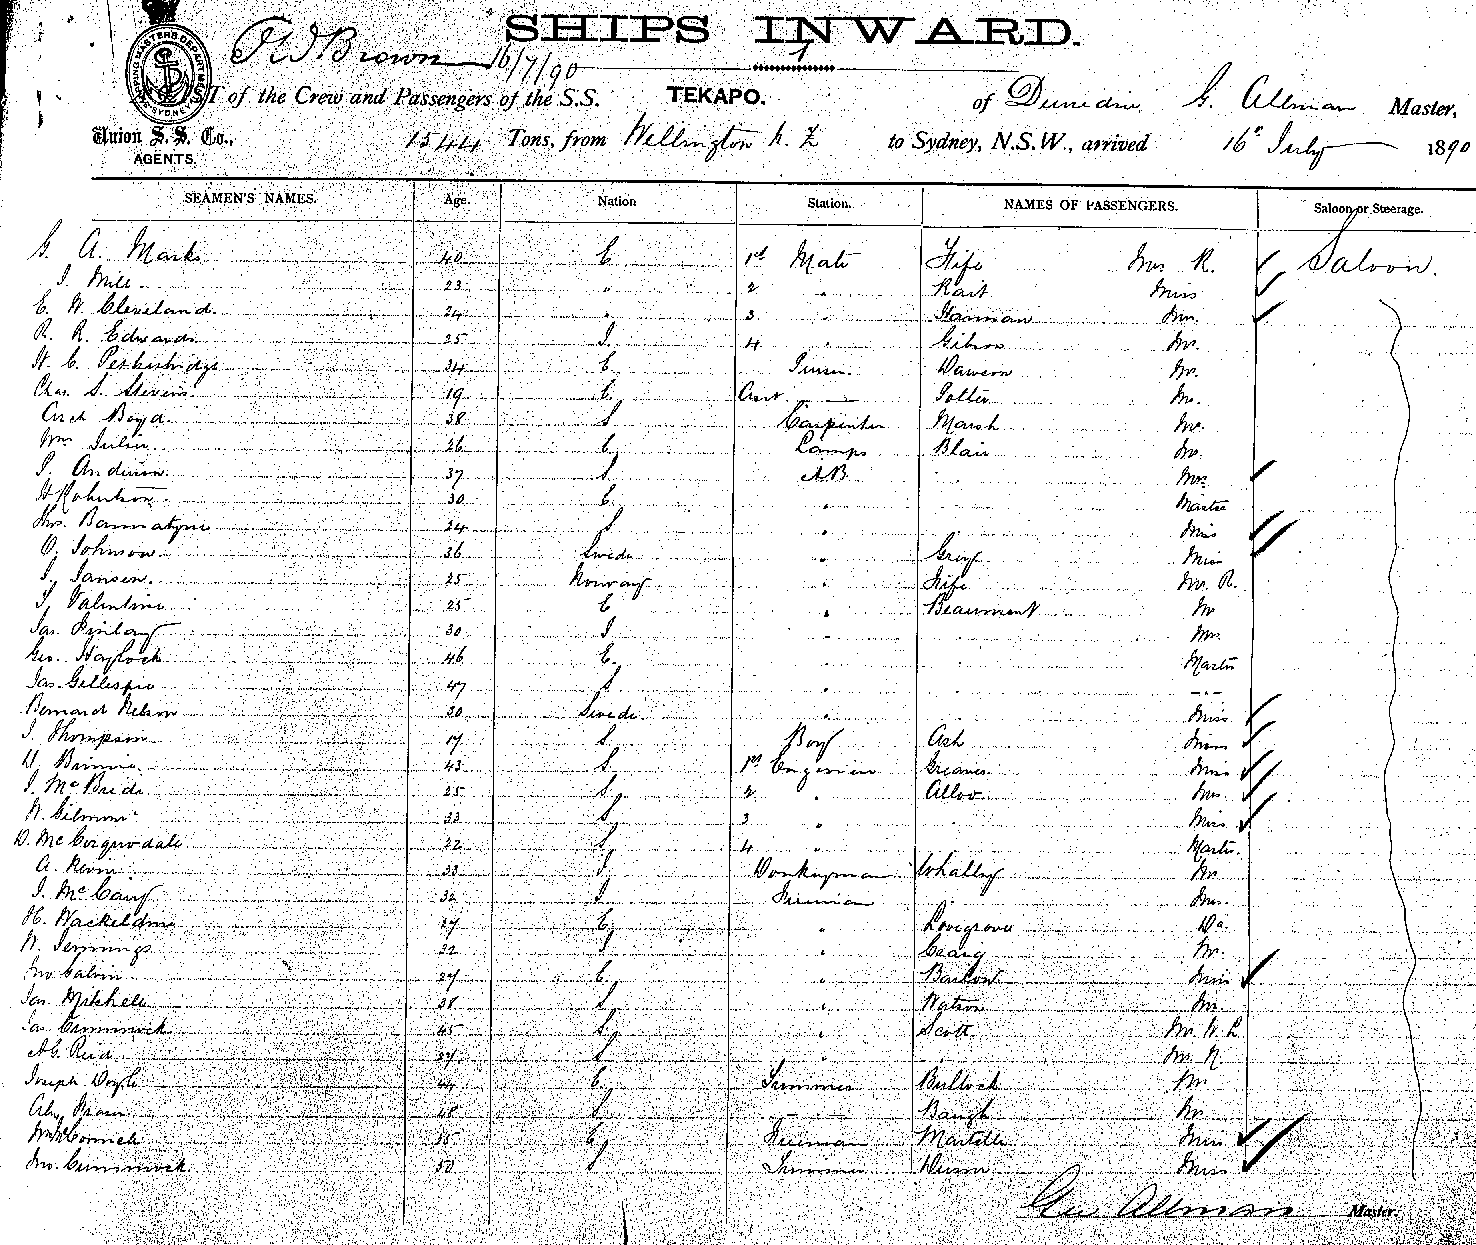 SHIPS INWARD.
F W Brown 16/7/90
LIST of the Crew and Passengers of the S.S. TEKAPO. of Dunedin G. Allman Master,
Union S. S. Co., 1544 Tons, from Wellington N. Z to Sydney, N.S.W., arrived 16" July 1890
AGENTS.
SEAMEN'S NAMES. Age. Nation Station. NAMES OF PASSENGERS. Saloon or Steerage.
G. A. Marks 40 E 1st Mate Fife Mrs R. Saloon.
J. Mill 23 " 2 " Rait Miss
E. W. Cleveland. 24 " 3 " Mrs.
R. R. Edwards 25 I 4 " Gibson Mr.
34 E Dawson Mr.
Chas. S. Stevens. 19 E Asst. Mr.
Arch Boyd. 38 S Carpenter Marsh Mr.
Wm 26 E Lamps Blair Mr.
37 S AB " Mrs.
H Robertson 30 E " " Master
Thos. Bannatyne 24 S " " Miss
O. Johnson 36 Swede " Grey Miss
J. Jansen. 25 Norway " Fife Mr. R.
J. Valentine 25 E " Beaumont Mr
Jas. Finlay 30 I " " Mrs.
Geo. Haylock 46 E. " " Master
Jas. Gillespie 47 S " " - " -
Bernard Nelson 30 Swede. " " Miss
J. Thompson 17 S Boy Ash Miss
Binnie 43 S 1st Engineer Greaves Miss
J. McBride 25 S 2 " Mrs
W. Gilmour 33 S 3 " " Miss
D. McCorquodale 22 S 4 " " Master.
A. 33 I Donkeyman Whalley Mr
J. McCary 32 I Fireman " Mrs.
H. 27 E " Lovegrove Do.
W. Jennings 32 I " Craig Mr.
Jno Calvin 27 E " Barlow Miss
Jas. Mitchell 38 S " Watson Mr.
Jas. Cummock 45 S " Scott Mr. W. L
A. C. Reid 37 S " " Mr. N.
Joseph Doyle 44 E Trimmer Bullock Mr
48 S - " - Baugh Mr.
Wm McCormick 35 E Fireman Martelli Miss
Jno. Cummock 50 S Trimmer Miss
Geo Allman Master.